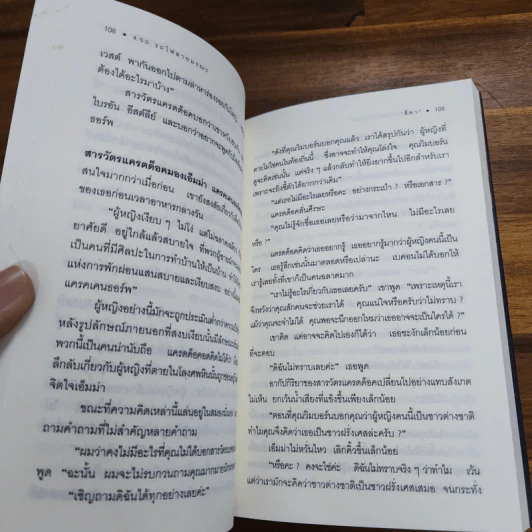 108 • 4.50 จากแพดดิงตัน
เวสต์ พากันออกไปตามล่าหาร่องรอยกันใหญ่
ต้องได้อะไรมาบ้าง"
สารวัตรแครดด็อคบอกว่าเขาหวัง
ไบรอัน อีสต์ลีย์ และบอกว่าอยากจะพูดกับ
ธอร์พ
สารวัตรแครดด็อคมองเอ็มม่า แครคเคนธอร์พ
สนใจมากกว่าเมื่อก่อน เขายังสงสัยเกี่ยวกับ
ของเธอก่อนเวลาอาหารกลางวัน
"ผู้หญิงเงียบๆ ไม่โง่ แต่ไม่ฉลาด
ยาศัยดี อยู่ใกล้แล้วสบายใจ ที่พวกผู้ชาย
เป็นคนที่มีศิลปะในการทำบ้านให้เป็นบ้าน
แห่งการพักผ่อนแสนสบายและเงียบสงบ
แครคเคนธอร์พ"
ผู้หญิงอย่างนี้มักจะถูกประเมินต่ำกว่า
หลังรูปลักษณ์ภายนอกที่สงบเงียบนั้น
พวกนี้เป็นคนน่านับถือ แครดด็อคอดคิดไม่ได้ว่า
ลึกลับเกี่ยวกับผู้หญิงที่ตายในโลงศพหินนั้น
จิตใจเอ็มม่า
ขณะที่ความคิดเหล่านี้แล่นอยู่ในสมอง
ถามคำถามที่ไม่สำคัญหลายคำถาม
"ผมว่าคงไม่มีอะไรที่คุณไม่ได้บอกสารวัตร
พูด "ฉะนั้น ผมจะไม่รบกวนถามคุณมากมาย
"เชิญถามดิฉันได้ทุกอย่างเลยค่ะ"
• 109
"ดังที่คุณวิมบอร์นบอกคุณแล้ว เราได้สรุปกันว่า ผู้หญิงที่
ตายไม่ใช่คนในท้องถิ่นนี้ ซึ่งอาจจะทำให้คุณโล่งใจ คุณวิมบอร์น
ดูจะคิดเช่นนั้น แต่จริงๆ แล้วกลับทำให้ยิ่งยากขึ้นไปอีกสำหรับเรา
เพราะจะยิ่งชี้ตัวได้ยากกว่าเดิม"
"แต่เธอไม่มีอะไรเลยหรือคะ อย่างกระเป๋า ? หรือเอกสาร ?"
แครดด็อคสั่นศีรษะ
"คุณไม่รู้จักชื่อเธอเลยหรือว่ามาจากไหน ไม่มีอะไรเลย
หรือ ?"
แครดด็อคคิดว่าเธออยากรู้ เธออยากรู้มากว่าผู้หญิงคนนี้เป็น
ใคร เธอรู้สึกเช่นนั้นมาตลอดหรือเปล่านะ เบคอนไม่ได้บอกให้
เรารู้เลยทั้งที่เขาก็เป็นคนฉลาดมาก
"เราไม่รู้อะไรเกี่ยวกับเธอเลยครับ" เขาพูด "เพราะเหตุนี้เรา
จึงหวังว่าคุณสักคนจะช่วยเราได้ คุณแน่ใจหรือครับว่าไม่ทราบ ?
แม้ว่าคุณจะจำไม่ได้ คุณพอจะนึกออกไหมว่าเธออาจจะเป็นใครได้ ?"
เขาคิด แต่อาจจะคิดไปเองก็ได้ว่า เธอชะงักเล็กน้อยก่อน
ที่จะตอบ
"ดิฉันไม่ทราบเลยค่ะ" เธอพูด
อากัปกิริยาของสารวัตรแครดด็อคเปลี่ยนไปอย่างแทบสังเกต
ไม่เห็น ยกเว้นน้ำเสียงที่แข็งขึ้นเพียงเล็กน้อย
"ตอนที่คุณวิมบอร์นบอกคุณว่าผู้หญิงคนนี้เป็นชาวต่างชาติ
ทำไมคุณจึงคิดว่าเธอเป็นชาวฝรั่งเศสล่ะครับ ?"
เอ็มม่าไม่หวั่นไหว เลิกคิ้วขึ้นเล็กน้อย
"หรือคะ ? คงจะใช่ค่ะ ดิฉันไม่ทราบจริงๆ ว่าทำไม เว้น
แต่ว่าเรามักจะคิดว่าชาวต่างชาติเป็นชาวฝรั่งเศสเสมอ จนกระทั่ง